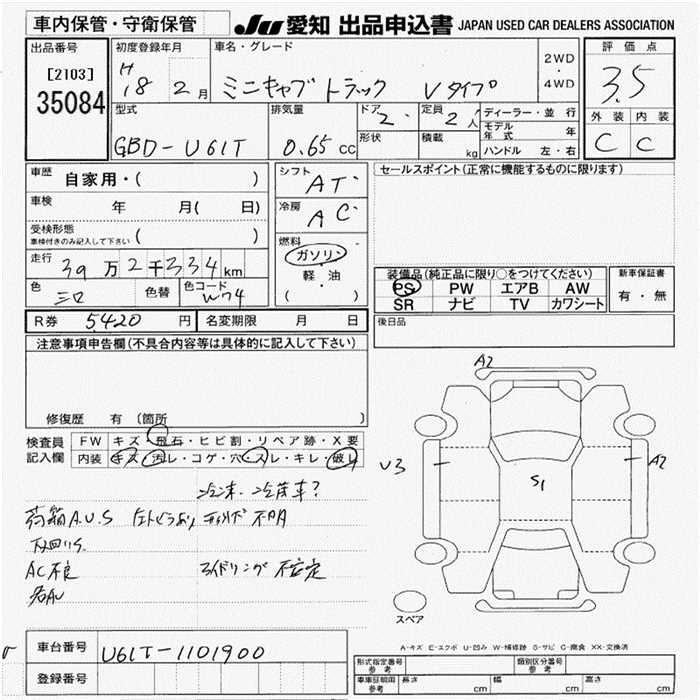 車内保管・守衛保管 JU 愛知 出品申込書 JAPAN USED CAR DEALERS ASSOCIATION
出品番号 [2103] 35084
初度登録年月 H 18 2 月
車名・グレード ミニキャブ トラック Vタイプ
2WD ・ 4WD
評価点 3.5
外装 内装
C C
型式 GBD-U61T
排気量 0.65 cc
ドア 2
形状
定員 2 人
積載 kg
ディーラー・並行
モデル年式 年
ハンドル 左・右
車歴 自家用・( )
車検 年 月( 日)
受検形態 車検付きのみ記入して下さい ( )
走行 39 万 2 千 334 km
色 シロ 色替 色コード W74
シフト AT
冷房 AC
燃料 ガソリン
軽・油
( )
セールスポイント(正常に機能するものに限ります)
装備品(純正品に限り○をつけてください)
PS PW エアB AW
SR ナビ TV カワシート
新車保証書
有・無
R券 5,420 円 名変期限 月 日
後日品
注意事項申告欄(不具合内容等は具体的に記入して下さい)
修復歴 有 (箇所 )
検査員記入欄
FW キズ・飛石・ヒビ割・リペア跡・X要
内装 キズ・汚レ・コゲ・穴・スレ・キレ・破レ
冷凍・冷蔵車?
荷箱A.U.S
不明
AC不良 アイドリング 不安定
A2
U3
S1
A2
スペア
A-キズ E-エクボ U-凹み W-補修跡 S-サビ C-腐食 XX-交換済
車台番号 U61T-1101900
登録番号
形式指定番号 参考
類別区分番号 参考
車車証明用 参考 長さ cm 幅 cm 高さ cm